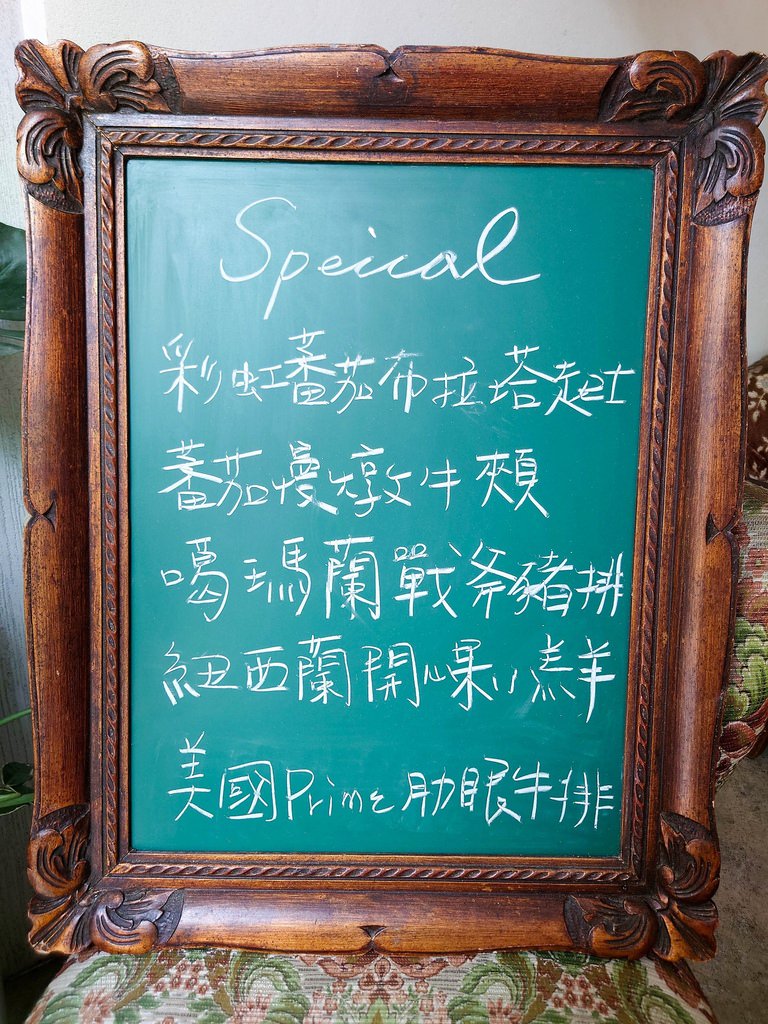 Speical
彩虹蕃茄布拉塔起士
蕃茄慢燉牛頰
噶瑪蘭戰斧豬排
紐西蘭開心果小羔羊
美國Prime肋眼牛排